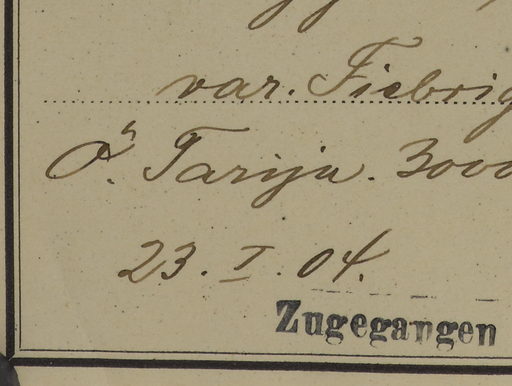 var. Fiebrig
Tarija. 3000
23. I. 04.
Zugegangen